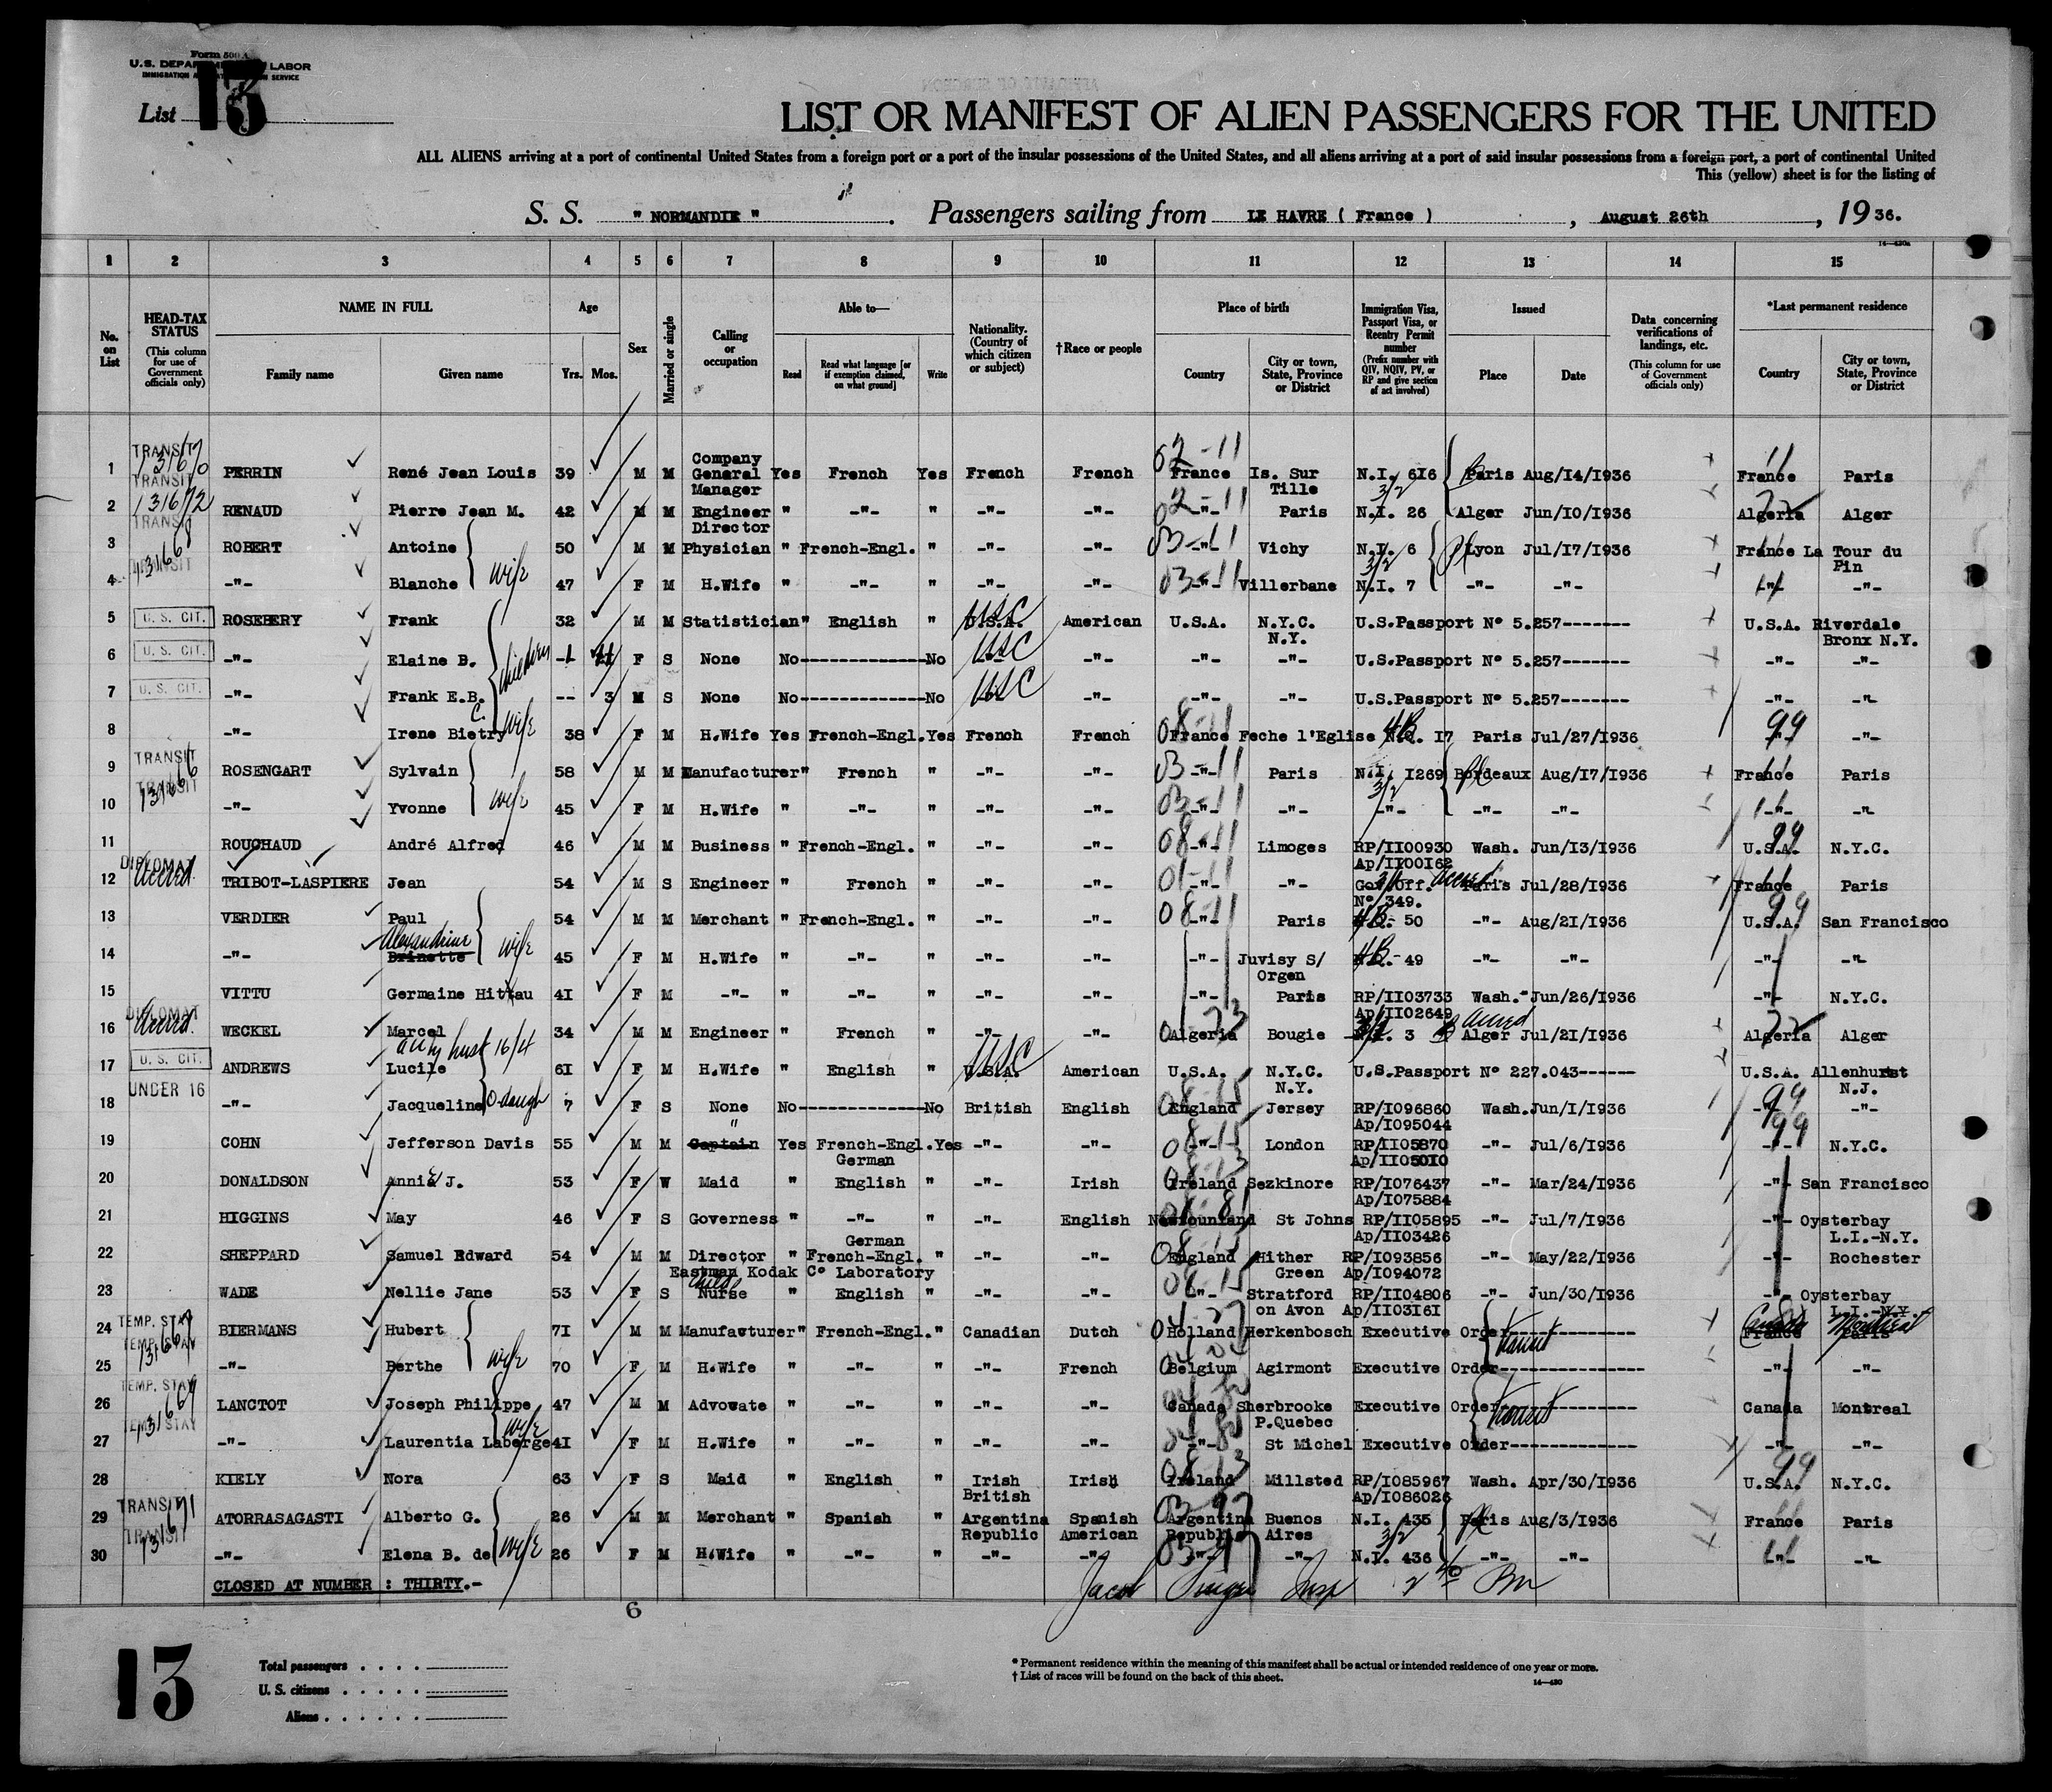 Form 500 A
U.S. DEPARTMENT OF LABOR
IMMIGRATION AND NATURALIZATION SERVICE
List 13
LIST OR MANIFEST OF ALIEN PASSENGERS FOR THE UNITED
ALL ALIENS arriving at a port of continental United States from a foreign port or a port of the insular possessions of the United States, and all aliens arriving at a port of said insular possessions from a foreign port, a port of continental United
This (yellow) sheet is for the listing of
S. S. " NORMANDIE " . Passengers sailing from LE HAVRE ( France ) , August 26th , 19 36.
1 2 3 4 5 6 7 8 9 10 11 12 13 14 15
No. on List
HEAD-TAX STATUS (This column for use of Government officials only)
NAME IN FULL Family name Given name
Age Yrs. Mos.
Sex
Married or single
Calling or occupation
Able to— Read Read what language [or if exemption claimed, on what ground] Write
Nationality. (Country of which citizen or subject)
†Race or people
Place of birth Country City or town, State, Province or District
Immigration Visa, Passport Visa, or Reentry Permit number (Prefix number with QIV, NQIV, PV, or RP and give section of act involved)
Issued Place Date
Data concerning verifications of landings, etc. (This column for use of Government officials only)
*Last permanent residence Country City or town, State, Province or District
1 TRANSIT PERRIN René Jean Louis 39 M M Company General Manager Yes French Yes French French 02-11 France Is. Sur Tille N.I. 616 3/2 Paris Aug/14/1936 France Paris
2 TRANSIT RENAUD Pierre Jean M. 42 M M Engineer Director " -"- " -"- -"- 02-11 -"- Paris N.I. 26 Alger Jun/10/1936 Algeria Alger
3 TRANSIT ROBERT Antoine 50 M M Physician " French-Engl. " -"- -"- 03-11 Vichy N.I. 6 3/2 Lyon Jul/17/1936 France La Tour du Pin
4 TRANSIT -"- Blanche wife 47 F M H.Wife " -"- " -"- -"- 03-11 -"- Villerbane N.I. 7 -"- -"- -"- -"-
5 U. S. CIT. ROSEBERY Frank 32 M M Statistician " English " U.S.A. USC American U.S.A. N.Y.C. N.Y. U.S.Passport N° 5.257------- U.S.A. Riverdale Bronx N.Y.
6 U. S. CIT. -"- Elaine B. children F S None No--------------No USC -"- -"- -"- U.S.Passport N° 5.257------- -"- -"-
7 U. S. CIT. -"- Frank E.B. -- 3 M S None No--------------No USC -"- -"- -"- U.S.Passport N° 5.257------- -"- -"-
8 -"- Irene C. Bietry wife 38 F M H.Wife Yes French-Engl. Yes French French 08-11 France Feche l'Eglise 17 Paris Jul/27/1936 99 -"- -"-
9 TRANSIT ROSENGART Sylvain 58 M M Manufacturer " French " -"- -"- 03-11 -"- Paris N.I. 1269 3/2 Bordeaux Aug/17/1936 France Paris
10 TRANSIT -"- Yvonne wife 45 F M H.Wife " -"- " -"- -"- 03-11 -"- -"- -"- -"- -"- -"- -"-
11 ROUCHAUD André Alfred 46 M M Business " French-Engl. " -"- -"- 08-11 -"- Limoges RP/1100930 Ap/1100162 Wash. Jun/13/1936 99 U.S.A. N.Y.C.
12 DIPLOMAT Accred. TRIBOT-LASPIERE Jean 54 M S Engineer " French " -"- -"- 01-11 -"- -"- Gov.Off. N° 349. Accred. Paris Jul/28/1936 France Paris
13 VERDIER Paul 54 M M Merchant " French-Engl. " -"- -"- 08-11 -"- Paris 50 -"- Aug/21/1936 99 U.S.A. San Francisco
14 -"- Alexandrine Brinette wife 45 F M H.Wife " -"- " -"- -"- -"- Juvisy S/ Orgen 49 -"- -"- -"- -"-
15 VITTU Germaine Hittau 41 F M -"- " -"- " -"- -"- -"- Paris RP/1103733 Ap/1102649 Wash. Jun/26/1936 -"- N.Y.C.
16 DIPLOMAT Accred. WECKEL Marcel 34 M M Engineer " French " -"- -"- Algeria Bougie 3 Accred Alger Jul/21/1936 Algeria Alger
17 U. S. CIT. ANDREWS Lucile 61 F M H.Wife " English " U.S.A. USC American U.S.A. N.Y.C. N.Y. U.S.Passport N° 227.043------ U.S.A. Allenhurst N.J.
18 UNDER 16 -"- Jacqueline 7 F S None No--------------No British English 08-15 England Jersey RP/1096860 Ap/1095044 Wash. Jun/1/1936 99 -"- -"-
19 COHN Jefferson Davis 55 M M Captain Yes French-Engl. German Yes -"- -"- 08-15 -"- London RP/1105870 Ap/1105010 -"- Jul/6/1936 99 -"- N.Y.C.
20 DONALDSON Annie J. 53 F W Maid " English " -"- Irish 08-13 Ireland Sezkinore RP/1076437 Ap/1075884 -"- Mar/24/1936 -"- San Francisco
21 HIGGINS May 46 F S Governess " -"- " -"- English Newfounland St Johns RP/1105895 Ap/1103426 -"- Jul/7/1936 -"- Oysterbay L.I.-N.Y.
22 SHEPPARD Samuel Edward 54 M M Director Eastman Kodak C° Laboratory " German French-Engl. " -"- -"- England Hither Green RP/1093856 Ap/1094072 -"- May/22/1936 -"- Rochester
23 WADE Nellie Jane 53 F S Childs Nurse " English " -"- -"- 08-15 -"- Stratford on Avon RP/1104806 Ap/1103161 -"- Jun/30/1936 -"- Oysterbay L.I.-N.Y.
24 TEMP. STAY BIERMANS Hubert 71 M M Manufavturer " French-Engl. " Canadian Dutch Holland Herkenbosch Executive Order-------------- Transit France Paris Canada Montreal
25 TEMP. STAY -"- Berthe wife 70 F M H.Wife " -"- " -"- French Belgium Agirmont Executive Order---------------- -"- -"-
26 TEMP. STAY LANCTOT Joseph Philippe 47 M M Advowate " -"- " -"- -"- Canada Sherbrooke P.Quebec Executive Order-------------- Transit Canada Montreal
27 TEMP. STAY -"- Laurentia Laberge wife 41 F M H.Wife " -"- " -"- -"- -"- St Michel Executive Order-------------- -"- -"-
28 KIELY Nora 63 F S Maid " English " Irish British Irish 08-13 Ireland Millsted RP/1085967 Ap/1086026 Wash. Apr/30/1936 99 U.S.A. N.Y.C.
29 TRANSIT ATORRASAGASTI Alberto G. 26 M M Merchant " Spanish " Argentina Republic Spanish American Argentina Republic Buenos Aires N.I. 435 3/2 Paris Aug/3/1936 France Paris
30 TRANSIT -"- Elena B. de wife 26 F M H.Wife " -"- " -"- -"- -"- -"- N.I. 436 -"- -"- -"- -"-
CLOSED AT NUMBER : THIRTY.-
Jacob Insp
6
13
Total passengers
U. S. citizens
Aliens
* Permanent residence within the meaning of this manifest shall be actual or intended residence of one year or more.
† List of races will be found on the back of this sheet.
14—430